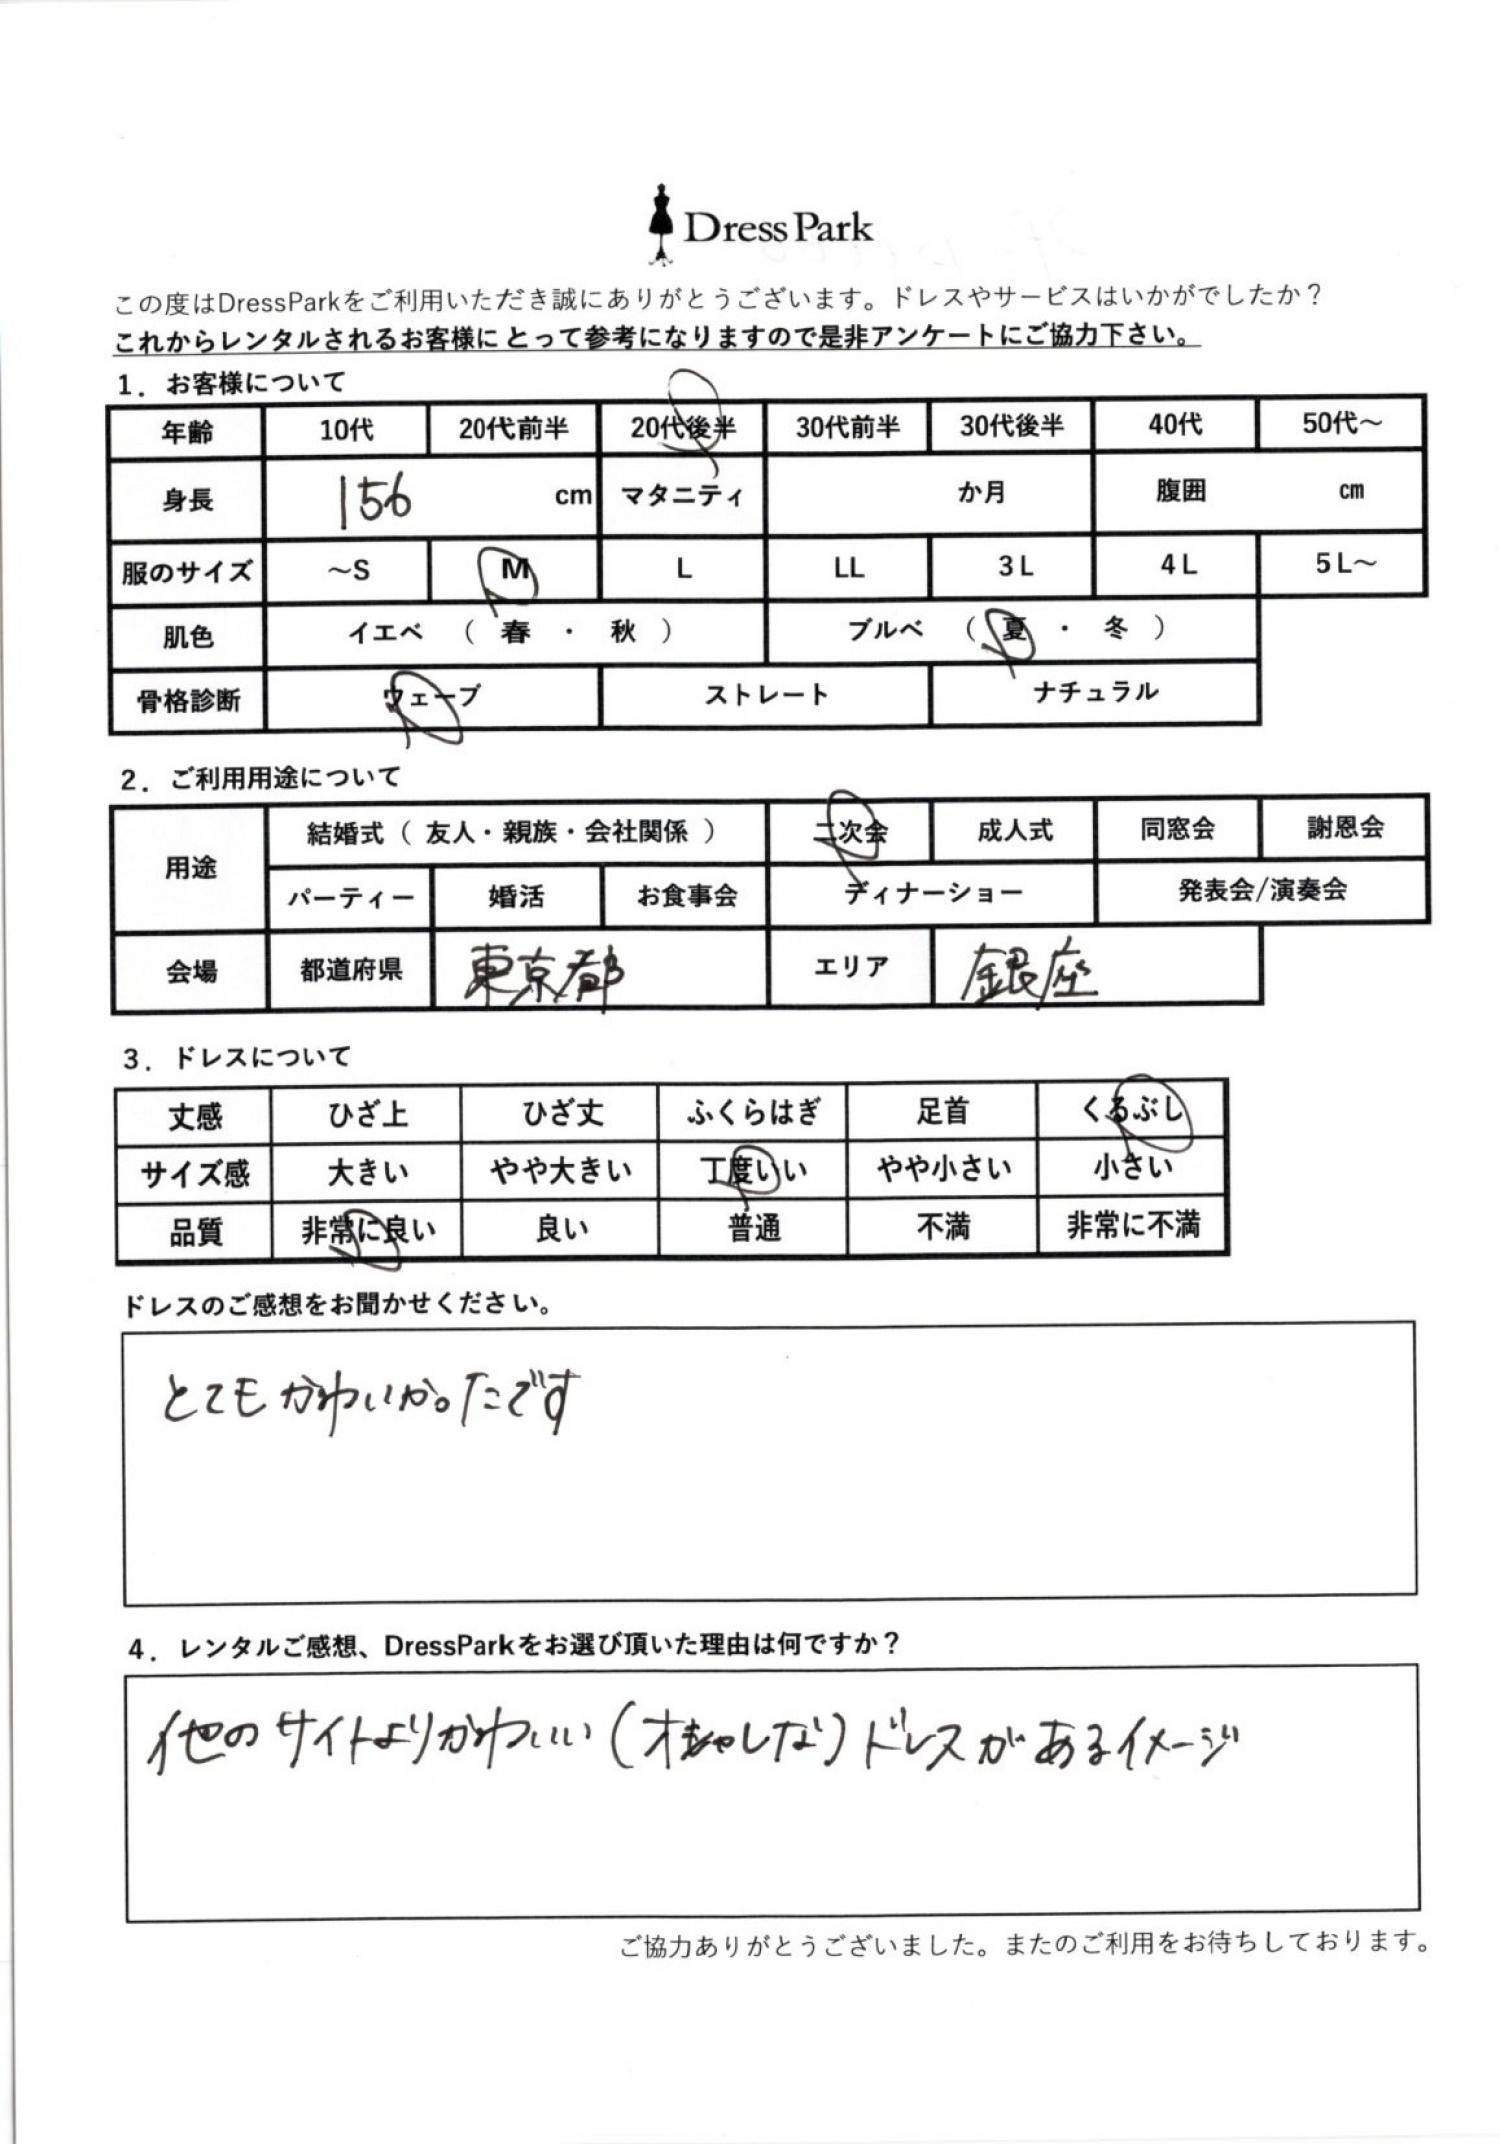 Dress Park
この度はDressParkをご利用いただき誠にありがとうございます。ドレスやサービスはいかがでしたか？
これからレンタルされるお客様にとって参考になりますので是非アンケートにご協力下さい。
1．お客様について
年齢 10代 20代前半 20代後半 30代前半 30代後半 40代 50代～
身長 156 cm マタニティ か月 腹囲 cm
服のサイズ ～S M L LL 3L 4L 5L～
肌色 イエベ （ 春 ・ 秋 ） ブルベ （ 夏 ・ 冬 ）
骨格診断 ウェーブ ストレート ナチュラル
2．ご利用用途について
用途 結婚式（ 友人・親族・会社関係 ） 二次会 成人式 同窓会 謝恩会
パーティー 婚活 お食事会 ディナーショー 発表会/演奏会
会場 都道府県 東京都 エリア 銀座
3．ドレスについて
丈感 ひざ上 ひざ丈 ふくらはぎ 足首 くるぶし
サイズ感 大きい やや大きい 丁度いい やや小さい 小さい
品質 非常に良い 良い 普通 不満 非常に不満
ドレスのご感想をお聞かせください。
とてもかわいかったです
4．レンタルご感想、DressParkをお選び頂いた理由は何ですか？
他のサイトよりかわいい(オシャレな)ドレスがあるイメージ
ご協力ありがとうございました。またのご利用をお待ちしております。